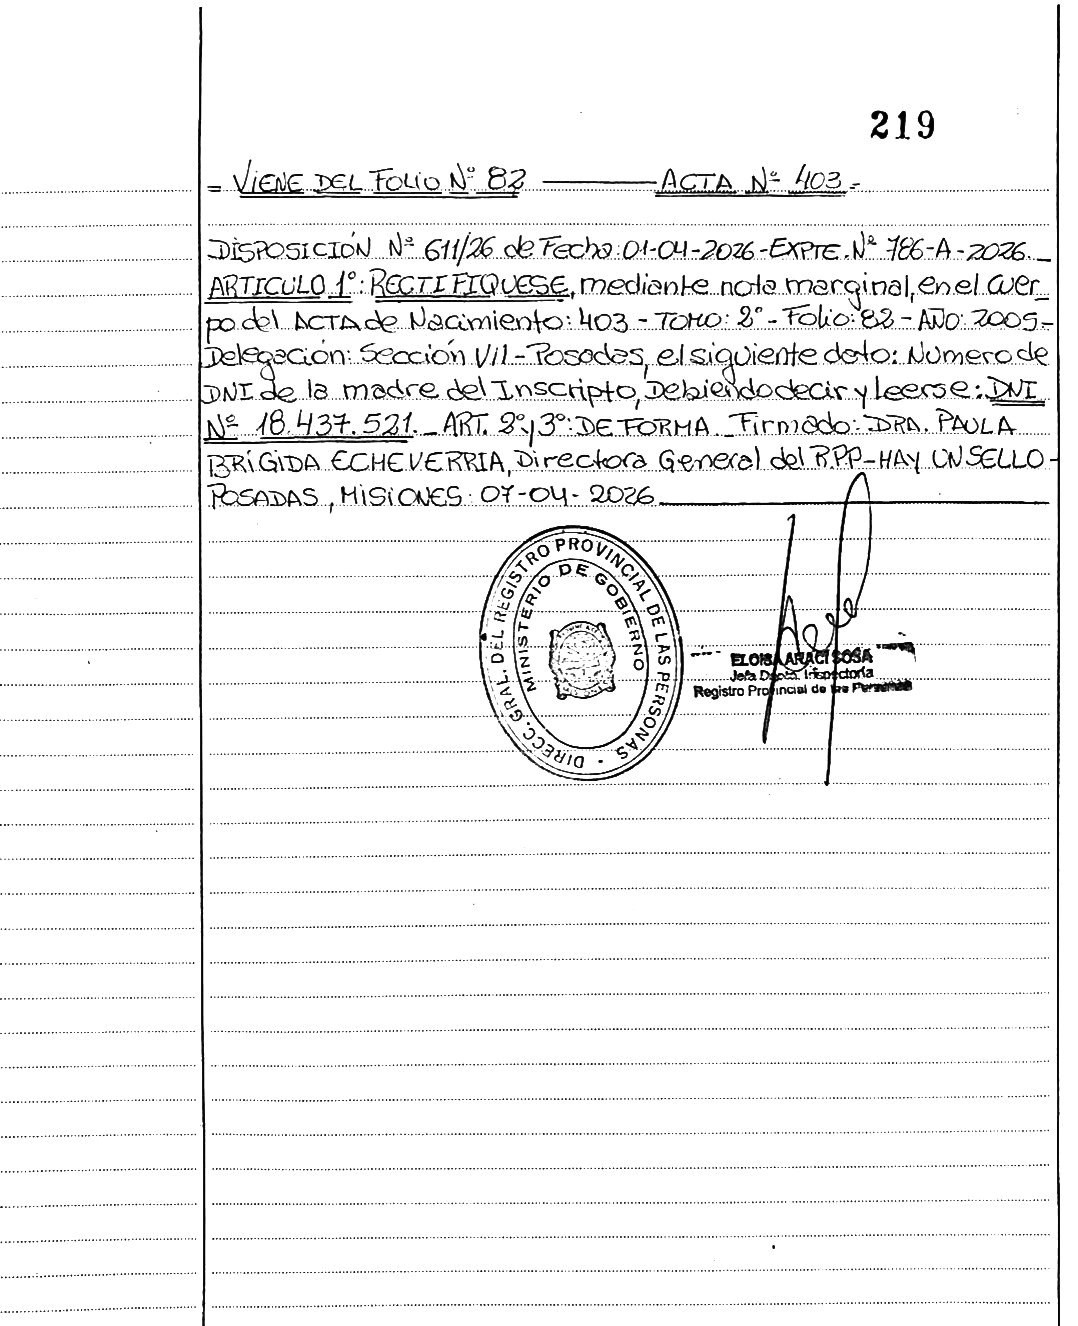 219
= VIENE DEL FOLIO Nº 82 ——— ACTA Nº 403.-
DISPOSICIÓN Nº 611/26 de Fecha: 01-04-2026-EXPTE. Nº 786-A-2026.
ARTICULO 1º: RECTIFIQUESE, mediante nota marginal, en el cuer_
po del ACTA de Nacimiento: 403 - TOMO: 2º - Folio: 82 - AÑO: 2005-
Delegación: Sección VII - Posadas, el siguiente dato: Numero de
DNI de la madre del Inscripto, Debiendo decir y Leerse: DNI
Nº 18.437.521. _ ART. 2º y 3º: DE FORMA. _ Firmado: DRA. PAULA
BRIGIDA ECHEVERRIA, Directora General del R.P.P-HAY UN SELLO-
POSADAS, MISIONES: 07-04-2026.
DIRECC. GRAL. DEL REGISTRO PROVINCIAL DE LAS PERSONAS -
MINISTERIO DE GOBIERNO
ELOISA ARACI SOSA
Jefa Dpto. Inspectoría
Registro Provincial de las Personas